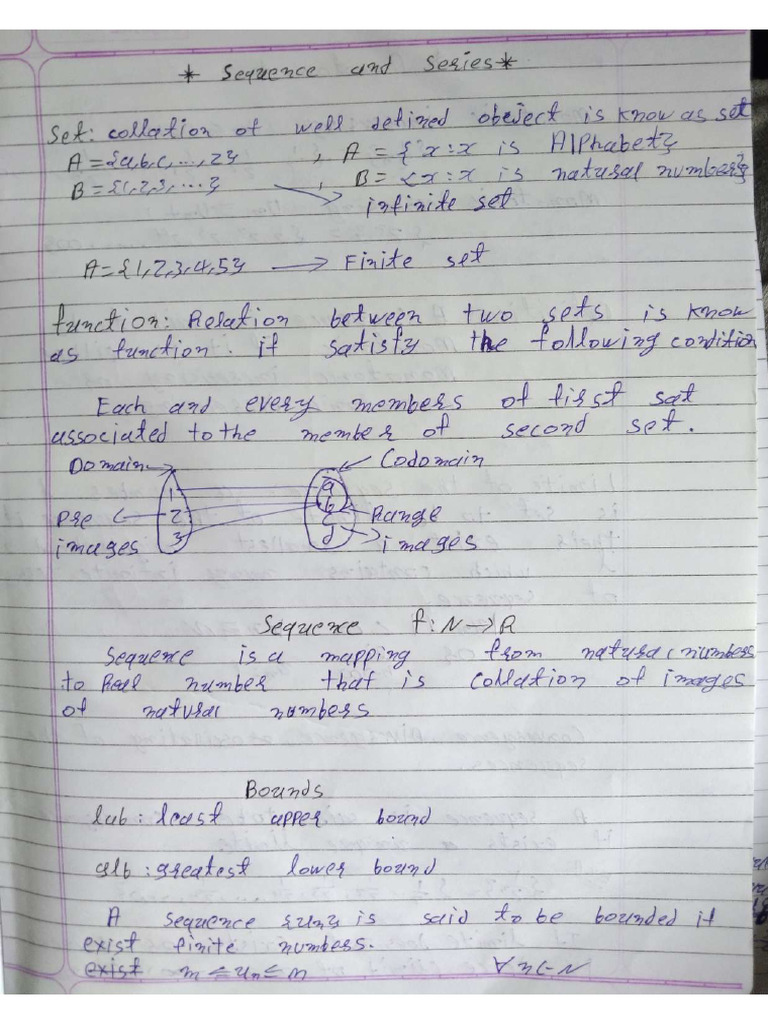 * Sequence and Series *
Set: collation of well defined obeject is know as set
A = {a,b,c,...,z} , A = {x:x is Alphabet}
B = {1,2,3,....} , B = {x:x is natural number}
infinite set
A = {1,2,3,4,5} → Finite set
function: Relation between two sets is know
as function. if satisfy the following condition
Each and every members of first sat
associated to the member of second set.
Domain Codomain
1 a
Pre 2 b Range
3 c
images d images
Sequence f: N → R
Sequence is a mapping from natural numbers
to Real number that is collation of images
of natural numbers
Bounds
lub: least upper bound
glb: greatest lower bound
A sequence {un} is said to be bounded if
exist finite numbers.
exist m ≤ un ≤ M